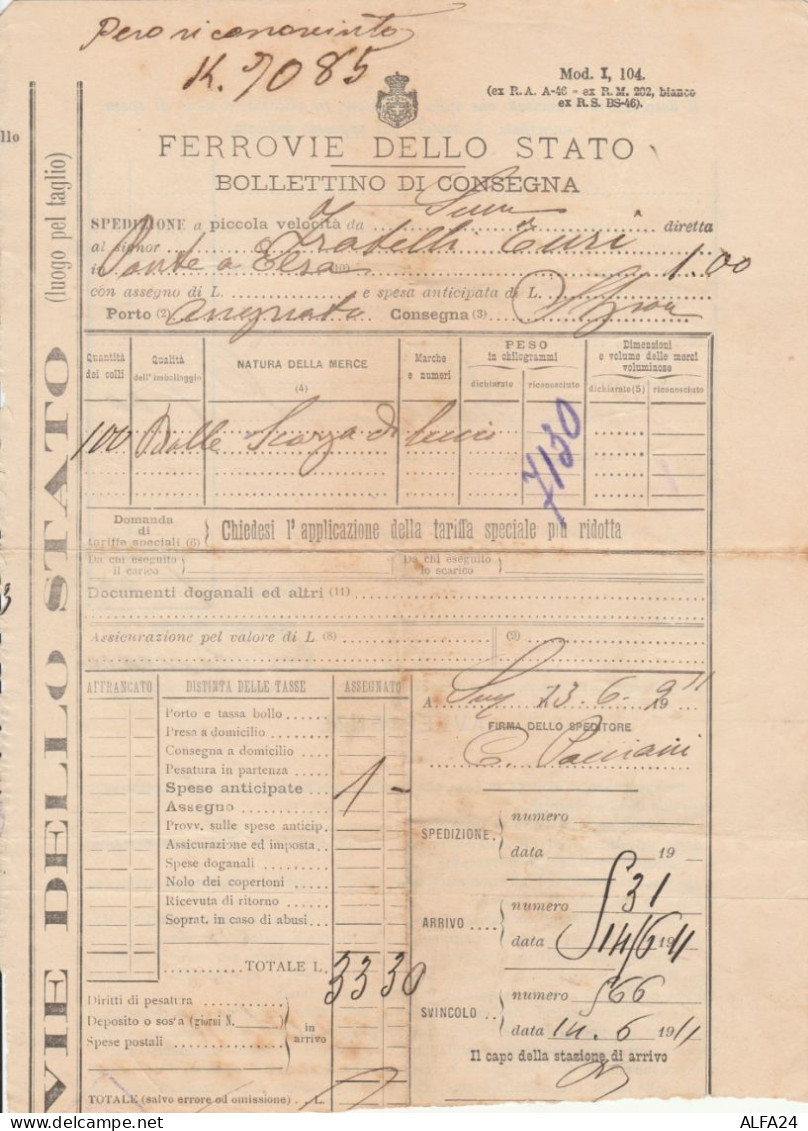 Peso riconosciuto
K. 7085
Mod. I, 104.
(ex R. A. A-46 - ex R. M. 202, bianco
ex R. S. BS-46).
llo
FERROVIE DELLO STATO
BOLLETTINO DI CONSEGNA
SPEDIZIONE a piccola velocità da diretta
al signor Fratelli Turi
in Ponte a Elsa
con assegno di L. e spesa anticipata di L. 1.00
Porto (2) assegnato Consegna (3)
Quantità dei colli
Qualità dell'imballaggio
NATURA DELLA MERCE
(4)
Marche e numeri
PESO
in chilogrammi
dichiarato
riconosciuto
Dimensioni
e volume delle merci
voluminose
dichiarato (5)
riconosciuto
100 Balle Scorza di leccio 7130
Domanda
di
tariffe speciali (6)
Chiedesi l'applicazione della tariffa speciale più ridotta
Da chi eseguito
il carico
Da chi eseguito
lo scarico
Documenti doganali ed altri (11)
Assicurazione pel valore di L (8) (9)
AFFRANCATO DISTINTA DELLE TASSE ASSEGNATO
Porto e tassa bollo
Presa a domicilio
Consegna a domicilio
Pesatura in partenza
Spese anticipate 1 -
Assegno
Provv. sulle spese anticip.
Assicurazione ed imposta
Spese doganali
Nolo dei copertoni
Ricevuta di ritorno
Soprat. in caso di abusi
TOTALE L. 33 30
Diritti di pesatura
Deposito o sosta (giorni N. )
Spese postali
in
arrivo
TOTALE (salvo errore od omissione) L.
A 13-6-911
FIRMA DELLO SPEDITORE
SPEDIZIONE.
numero
data 19
ARRIVO
numero 531
data 14/6 1911
SVINCOLO
numero 566
data 14. 6 1911
Il capo della stazione di arrivo
(luogo pel taglio)
VIE DELLO STATO
delcampe.net
ALFA24